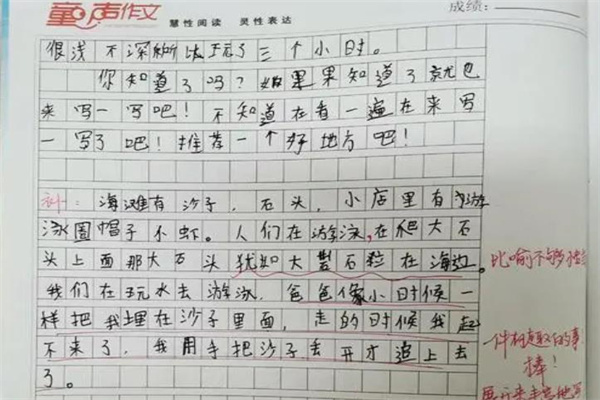 童声作文 慧性阅读 灵性表达 成绩:
很浅不深所以玩了三个小时。
你知道了吗?如果果知道了就也
来写一写吧!不知道在看一遍在来写
一写了吧!推荐一个好地方吧!
补:海滩有沙子,石头,小店里有游
泳圈帽子不虾。人们在游泳,在爬大石
头上面那大石头犹如大石粒在海边。
比喻不够恰
我们在玩水去游泳,爸爸像小时候一
样把我埋在沙子里面,走的时候我起
不来了,我用手把沙子丢开才追上去
了。
一件有趣的事
棒!